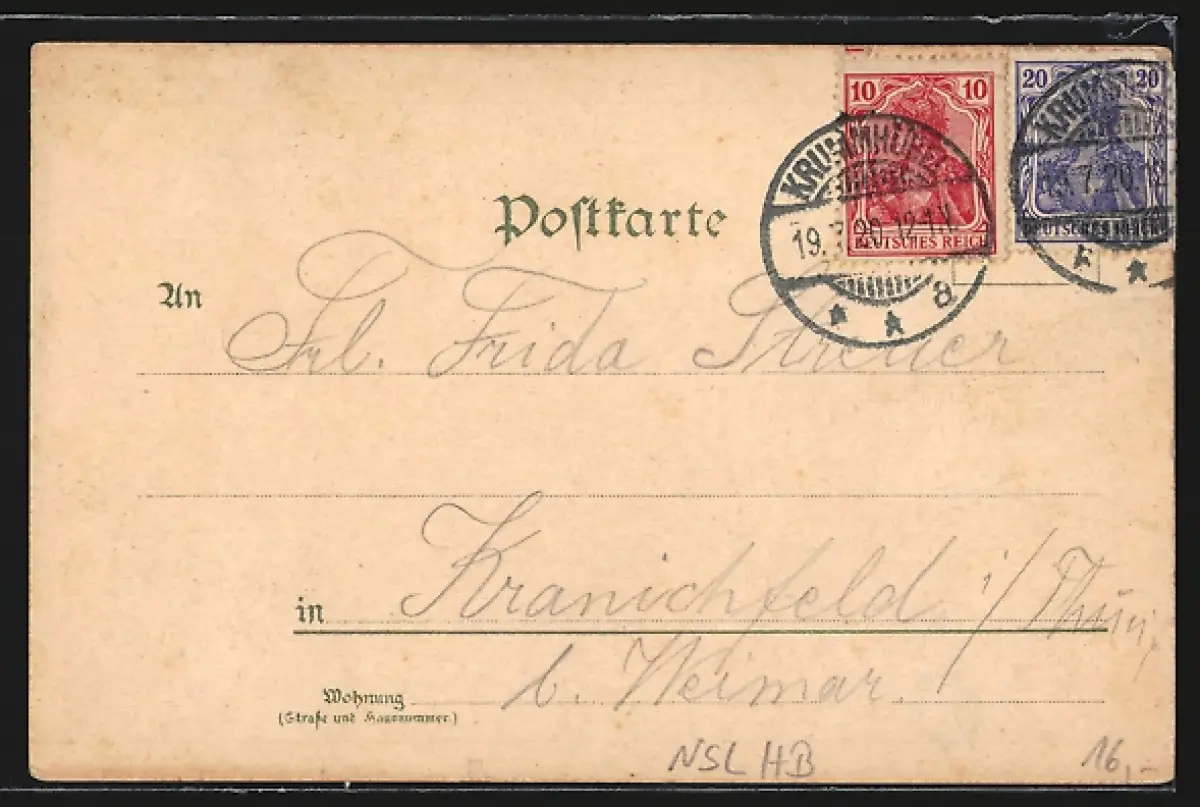 10 10
20 20
DEUTSCHES REICH
DEUTSCHES REICH
KRUMMHÜBEL
19.7.20.12-1.V.
a
KRUMM
7.20.12
Postkarte
An
Frl. Frida Streuer
in Kranichfeld i/Thür.
b. Weimar.
Wohnung
(Straße und Hausnummer.)
NSL HB
16,-